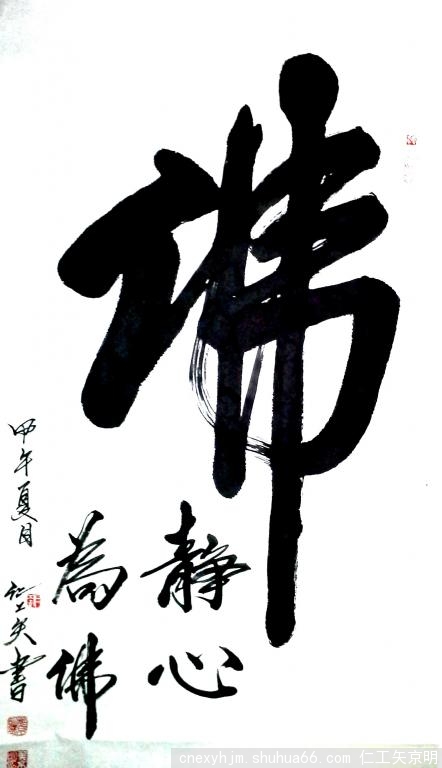 佛
靜心
為佛
甲午夏月
仁工矢書
cnexyhjm.shuhua66.com 仁工矢京明